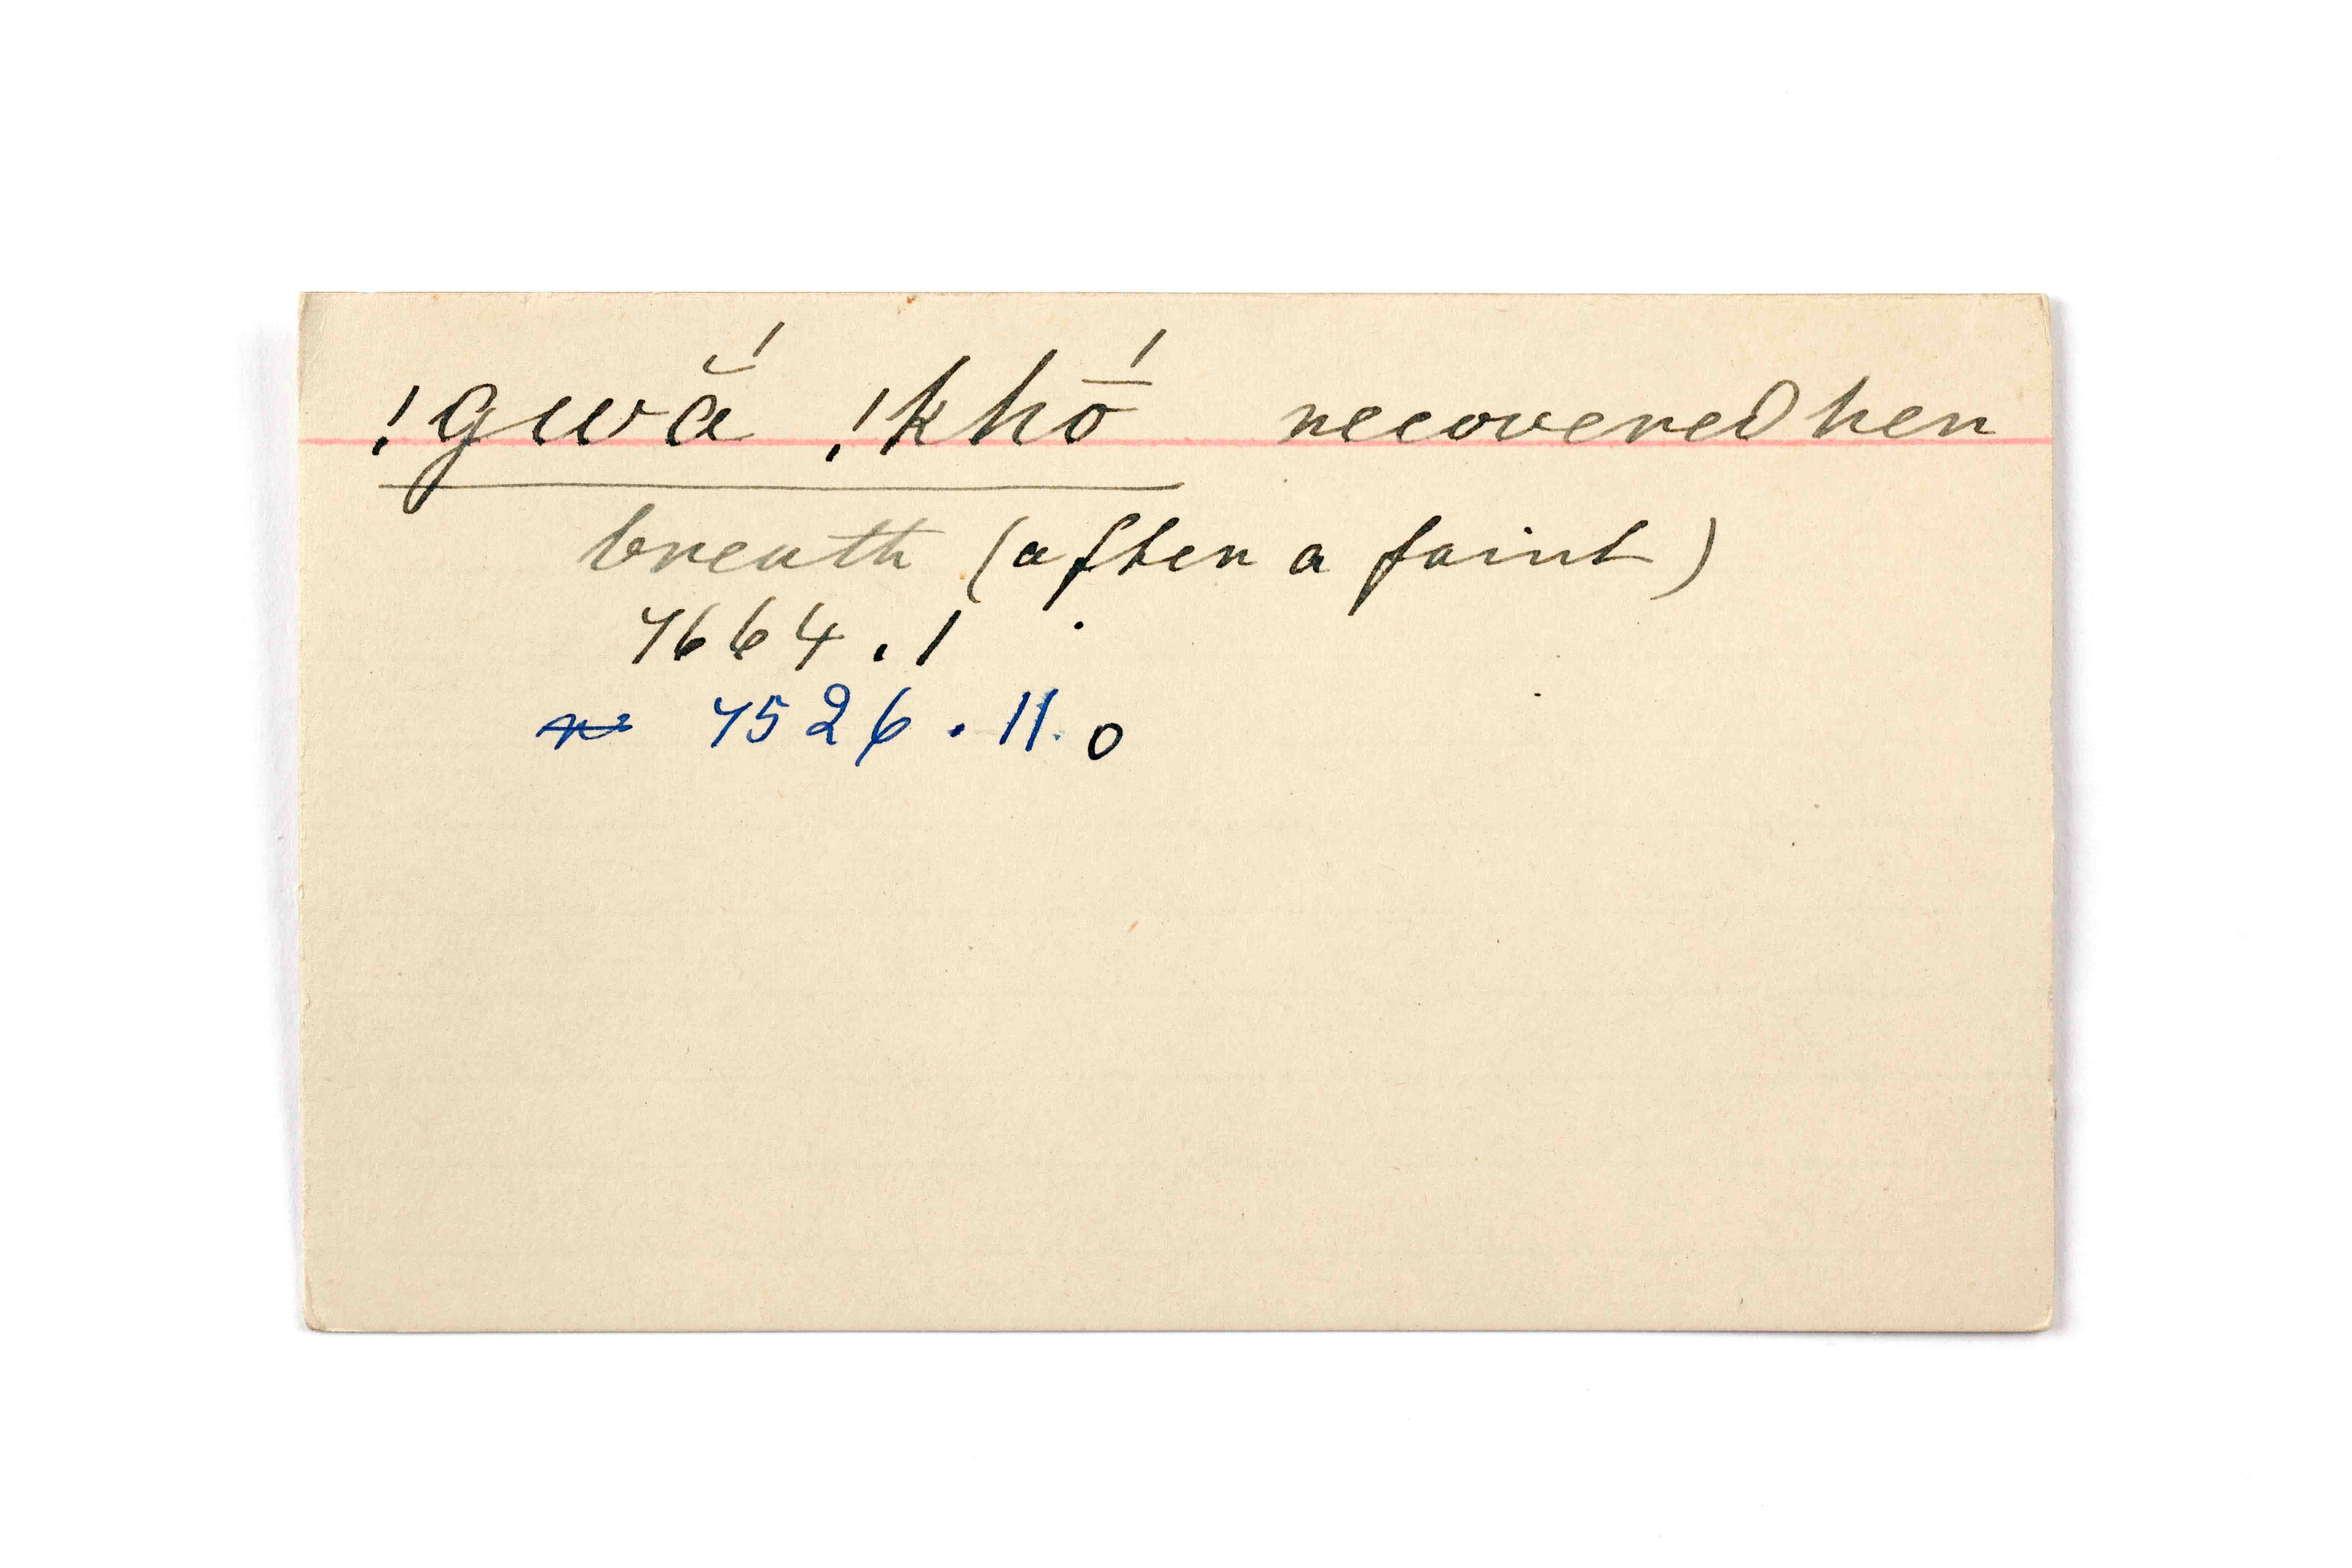 !gwắ !khṓ recovered her
breath (after a faint)
7664.1
7526.11.0